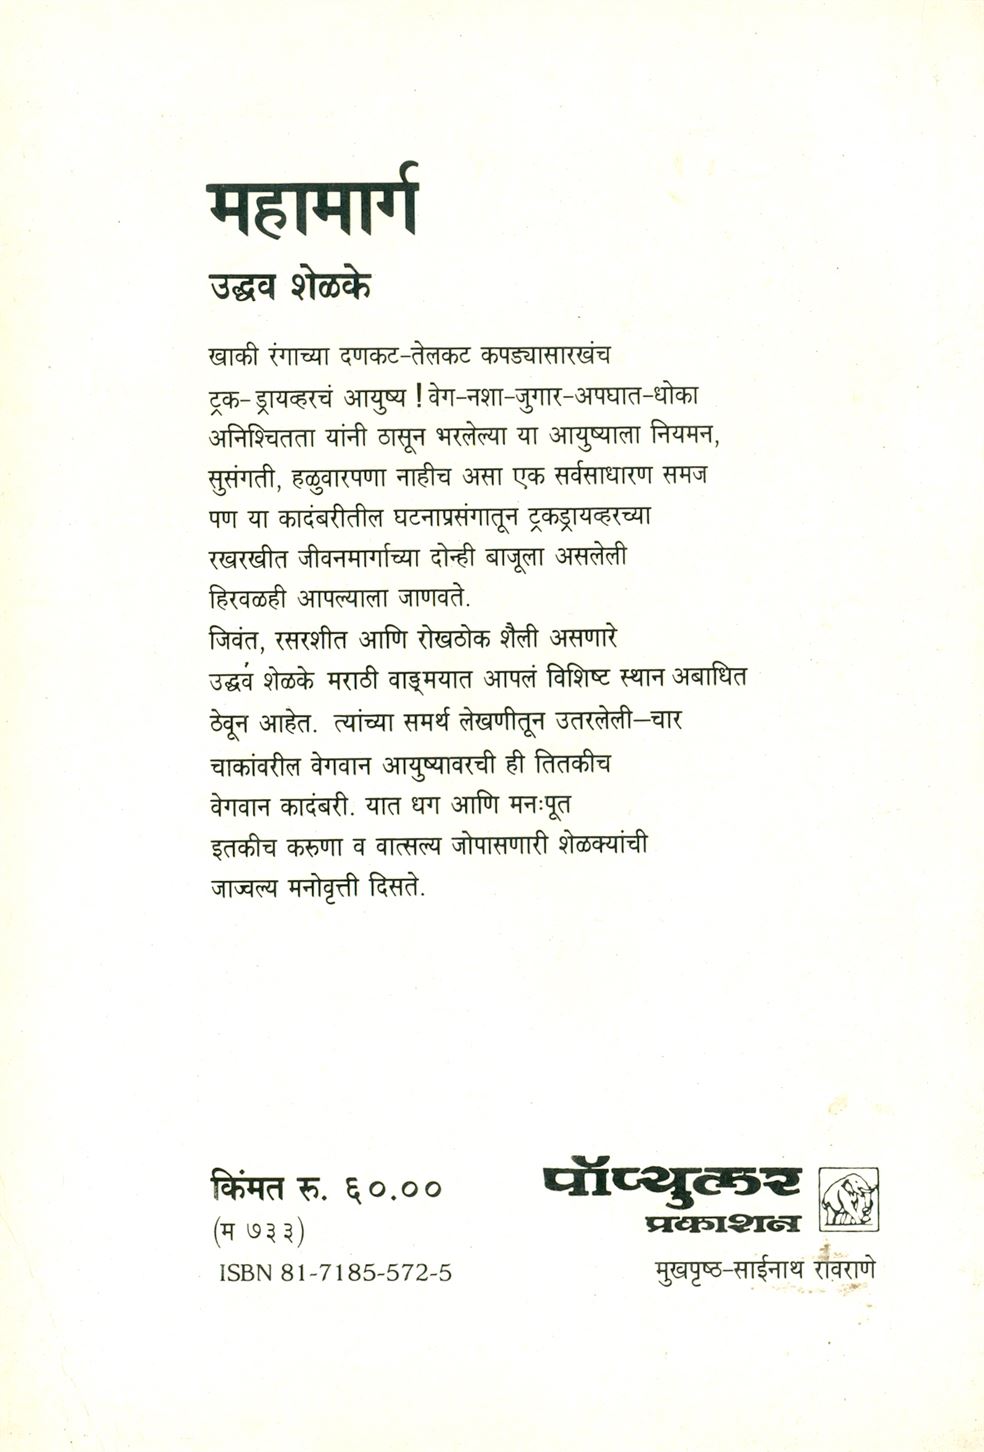 महामार्ग
उद्धव शेळके
खाकी रंगाच्या दणकट-तेलकट कपड्यासारखंच
ट्रक-ड्रायव्हरचं आयुष्य ! वेग-नशा-जुगार-अपघात-धोका
अनिश्चितता यांनी ठासून भरलेल्या या आयुष्याला नियमन,
सुसंगती, हळुवारपणा नाहीच असा एक सर्वसाधारण समज
पण या कादंबरीतील घटनाप्रसंगातून ट्रकड्रायव्हरच्या
रखरखीत जीवनमार्गाच्या दोन्ही बाजूला असलेली
हिरवळही आपल्याला जाणवते.
जिवंत, रसरशीत आणि रोखठोक शैली असणारे
उद्धव शेळके मराठी वाङ्मयात आपलं विशिष्ट स्थान अबाधित
ठेवून आहेत. त्यांच्या समर्थ लेखणीतून उतरलेली–चार
चाकांवरील वेगवान आयुष्यावरची ही तितकीच
वेगवान कादंबरी. यात धग आणि मनःपूत
इतकीच करुणा व वात्सल्य जोपासणारी शेळक्यांची
जाज्वल्य मनोवृत्ती दिसते.
किंमत रु. ६०.००
(म ७३३)
ISBN 81-7185-572-5
पॉप्युलर
प्रकाशन
मुखपृष्ठ-साईनाथ रावराणे